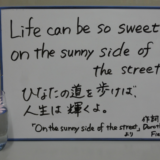 Life can be so sweet
on the sunny side of
the street
ひなたの道を歩けば、
人生は輝くよ。
"On the sunny side of the street,
作詞
より